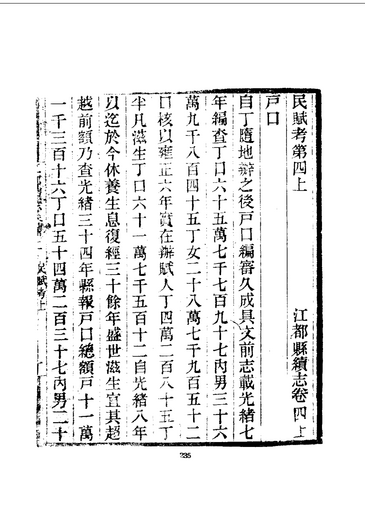 民賦考第四上
江都縣續志卷四上
戸口
自丁隨地辦之後戸口編審久成具文前志載光緒七
年編查丁口六十五萬七千七百九十七內男三十六
萬九千八百四十五丁女二十八萬七千九百五十二
口核以雍正六年實在辦賦人丁四萬二百八十五丁
半凡滋生丁口六十一萬七千五百十二自光緒八年
以迄於今休養生息復經三十餘年盛世滋生宜其超
越前額乃查光緒三十四年縣報戸口總額戸十一萬
一千三百十六丁口五十四萬二百三十七內男二十
235